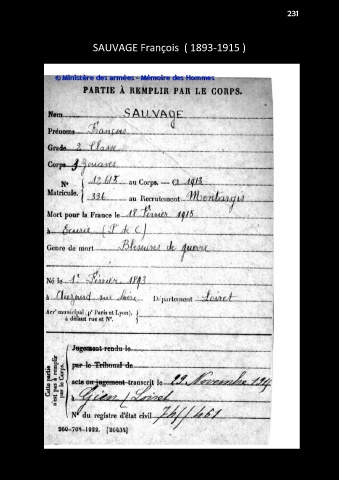 231
SAUVAGE François ( 1893-1915 )
© Ministère des armées - Mémoire des Hommes
PARTIE À REMPLIR PAR LE CORPS.
Nom SAUVAGE
Prénoms François
Grade 2 Classe
Corps 3 Zouaves
N° 12617 au Corps. — Cl 1913
Matricule. 336 au Recrutement Montargis
Mort pour la France le 18 février 1915
à Ecurie (P de C)
Genre de mort Blessures de guerre
Né le 1er Février 1893
à sur Loire Département Loiret
Arr' municipal (p' Paris et Lyon),
à défaut rue et N°.
Cette partie n'est pas à remplir par le Corps.
Jugement rendu le
par le Tribunal de
acte ou jugement transcrit le 29 Novembre
à Gien (Loiret
N° du registre d'état civil 74//461
260-708-1922. [26434]